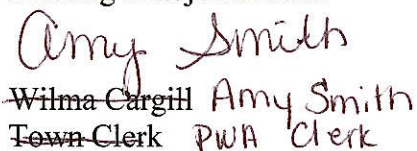 Amy Smith
Wilma Cargill Amy Smith
Town Clerk PWA Clerk